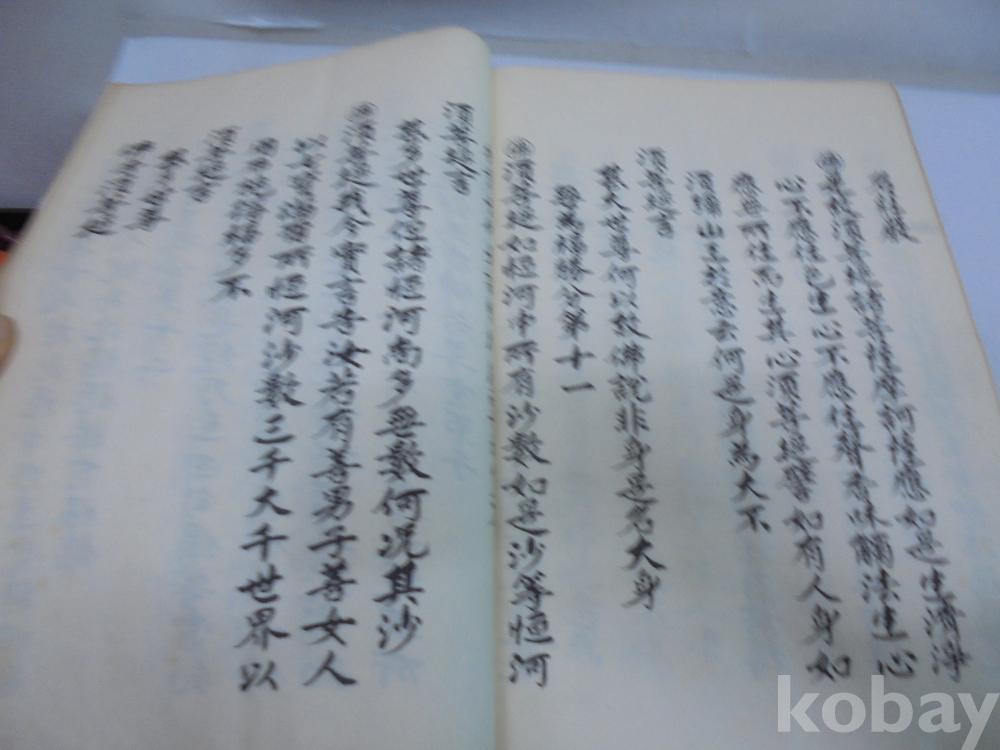 莊嚴
㊞是故須菩提諸菩薩摩訶薩應如是生清淨
心不應住色生心不應住聲香味觸法生心
應無所住而生其心須菩提譬如有人身如
須彌山王於意云何是身爲大不
須菩提言
甚大世尊何以故佛說非身是名大身
無爲福勝分第十一
須菩提如恒河中所有沙數如是沙等恒河
須菩提言
甚多世尊但諸恒河尚多無數何況其沙
須菩提我今實言告汝若有善男子善女人
以七寶滿爾所恒河沙數三千大千世界以
用布施得福多不
須菩提言
甚多世尊
佛告須菩提
kobay